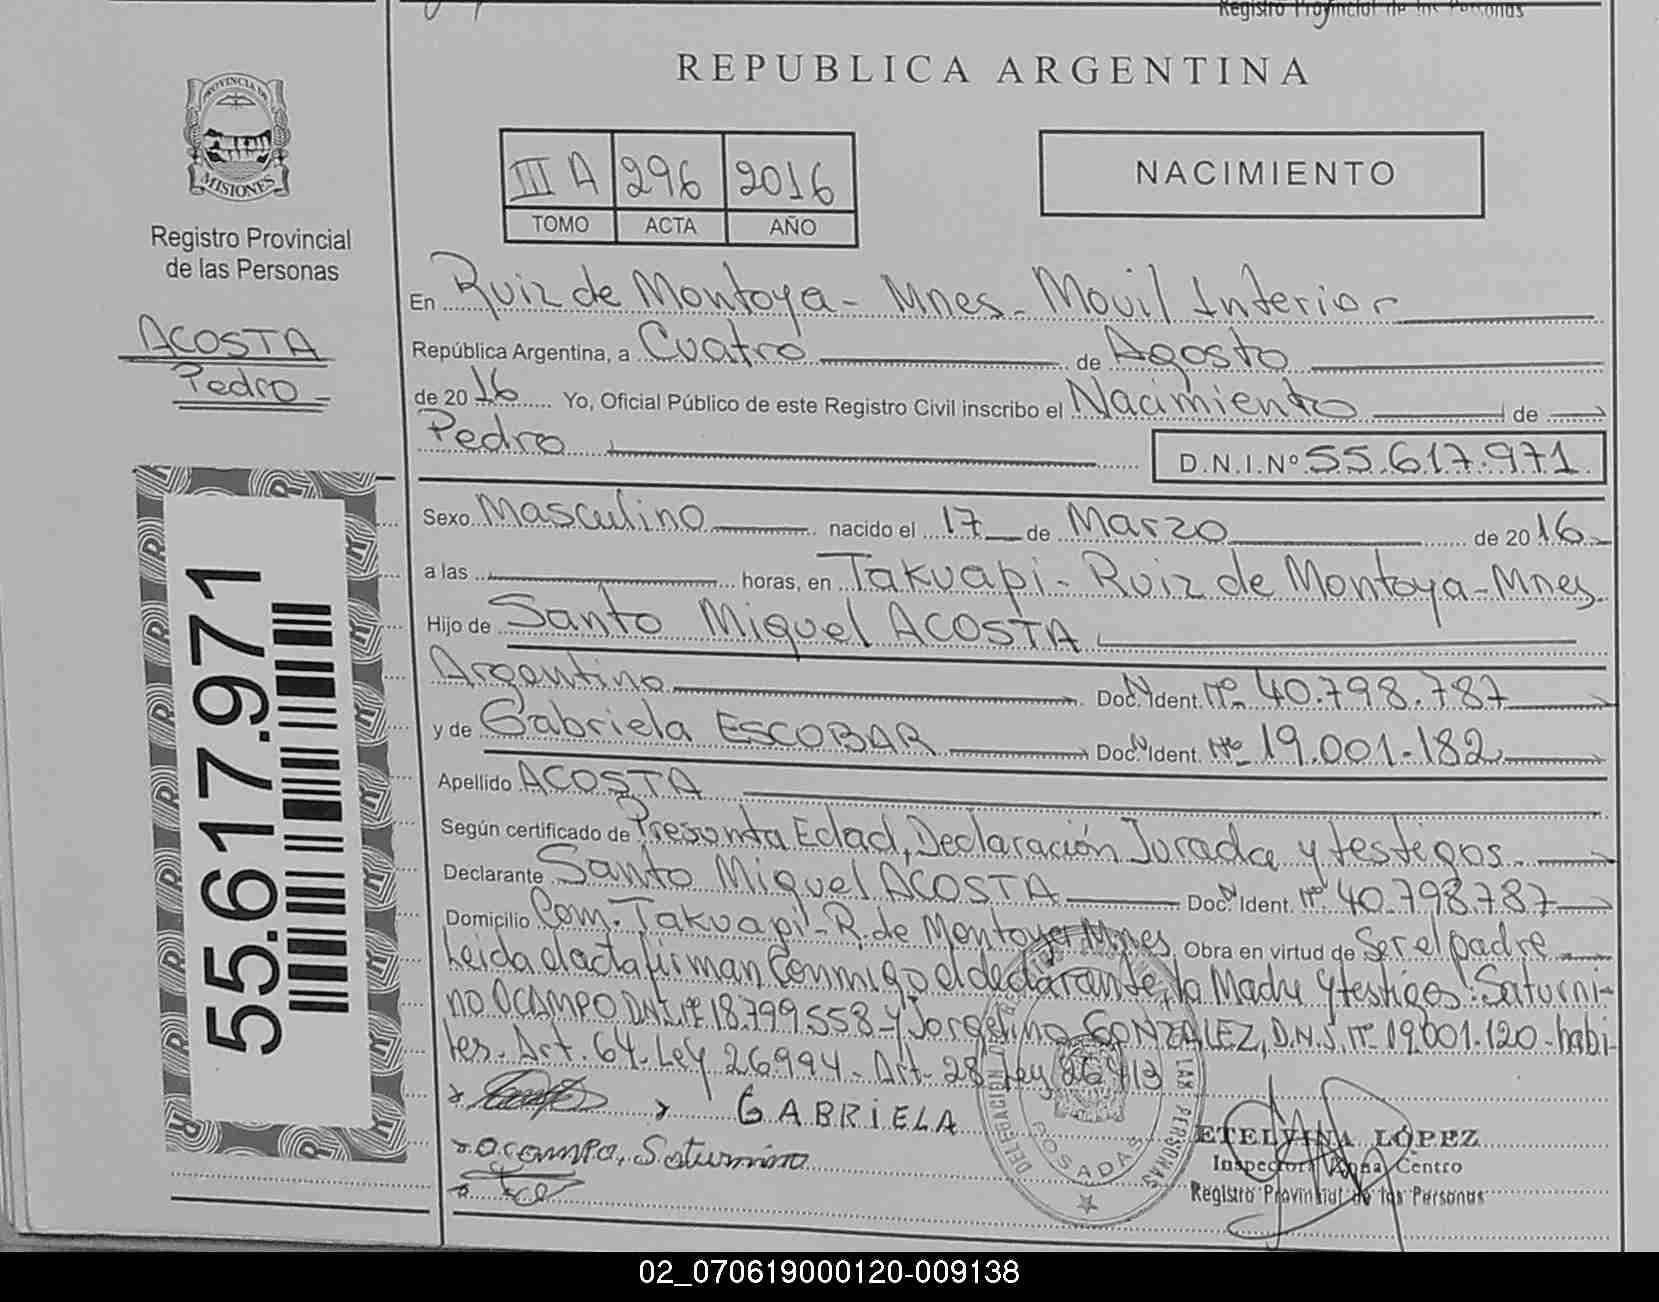 Registro Provincial de las Personas
REPUBLICA ARGENTINA
PROVINCIA DE
MISIONES
Registro Provincial
de las Personas
ACOSTA
Pedro
55.617.971
III A 296 2016
TOMO ACTA AÑO
NACIMIENTO
En Ruiz de Montoya - Mnes - Movil Interior
República Argentina, a Cuatro de Agosto
de 2016 Yo, Oficial Público de este Registro Civil inscribo el Nacimiento de
Pedro D.N.I.Nº 55.617.971
Sexo Masculino nacido el 17 de Marzo de 2016
a las horas, en Takuapi - Ruiz de Montoya - Mnes.
Hijo de Santo Miguel ACOSTA
Argentino Doc. N Ident. Nº 40.798.787
y de Gabriela ESCOBAR Doc. N Ident. Nº 19.001.182
Apellido ACOSTA
Según certificado de Presunta Edad, Declaración Jurada y testigos.
Declarante Santo Miguel ACOSTA Doc. N Ident. Nº 40.798.787
Domicilio Com. Takuapi - R. de Montoya Mnes Obra en virtud de Ser el padre
Leida el acta firman Conmigo el declarante, la Madre y testigos: Saturni-
no OCAMPO DNI. Nº 18.799.558 y Jorgelino GONZALEZ, D.N.I. Nº 19.001.120 - habi-
les. Art. 64. Ley 26994 - Art. 28 Ley 26413
GABRIELA
Ocampo, Saturnino
DELEGACION
LAS PERSONAS
POSADAS
ETELVINA LÓPEZ
Inspectora Zona Centro
Registro Provincial de las Personas
02_070619000120-009138